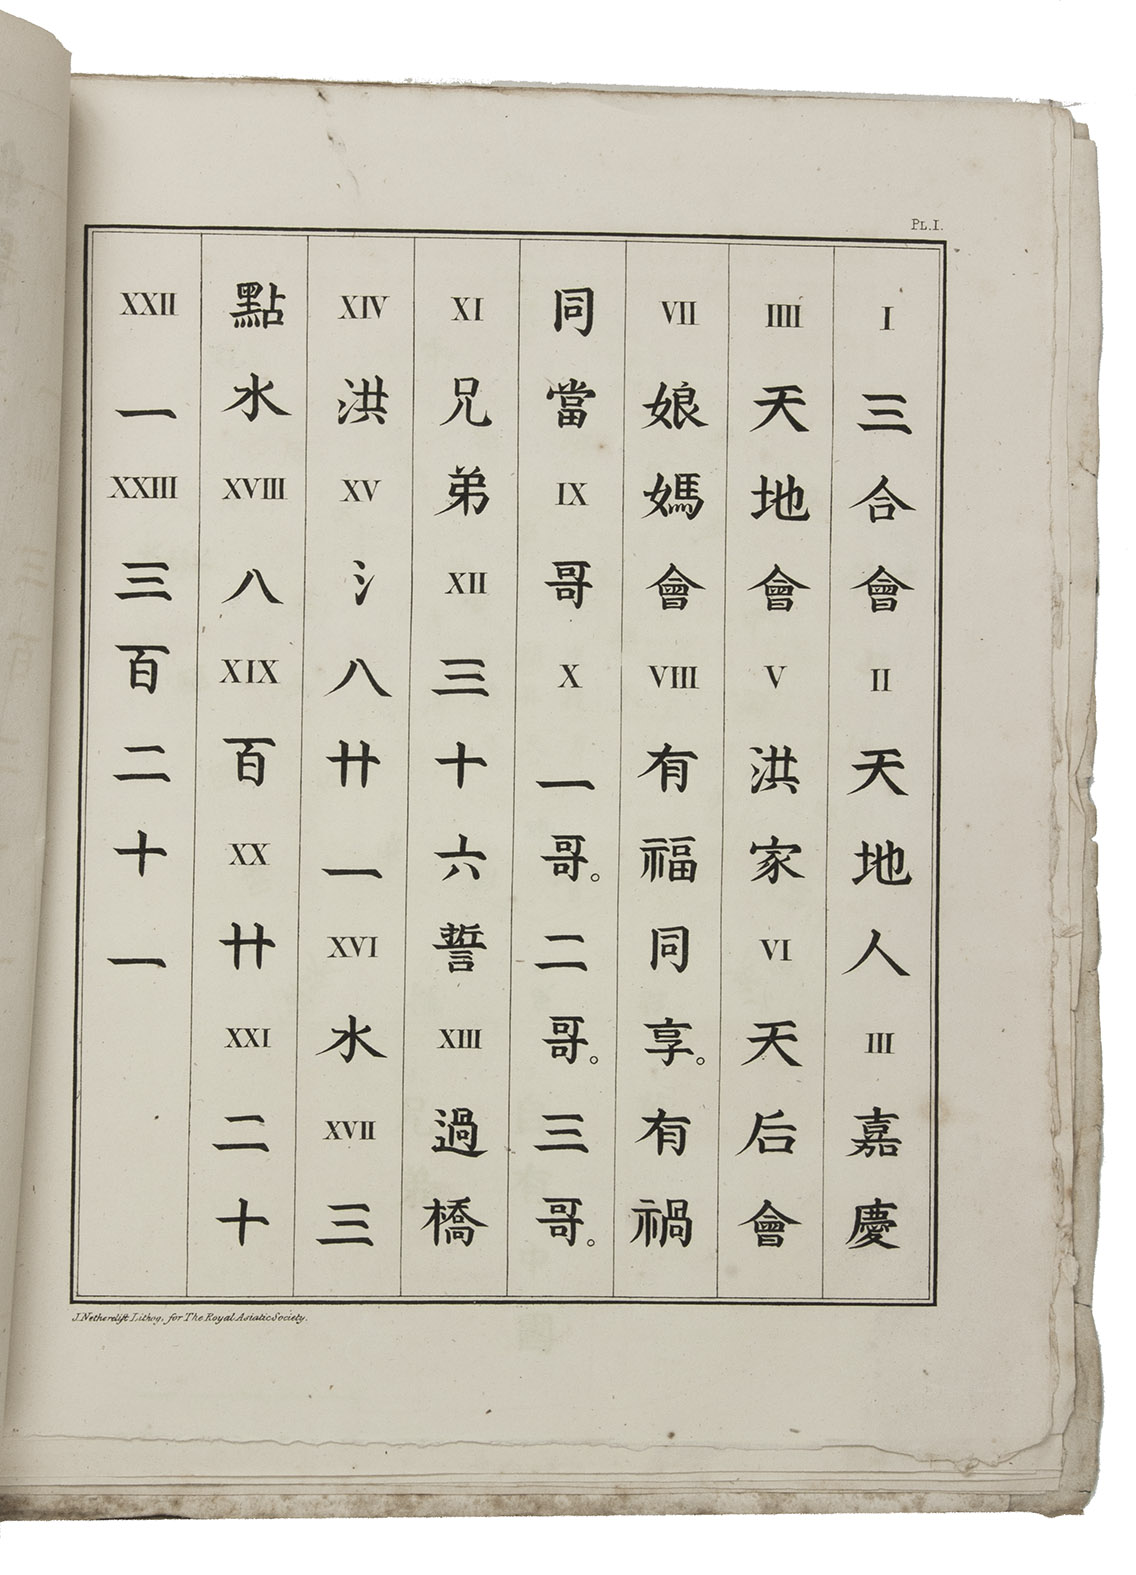 PL.I.
I 三合會 II 天地人 III 嘉慶
IIII 天地會 V 洪家 VI 天后會
VII 娘媽會 VIII 有福同享。有禍
同當 IX 哥 X 一哥。二哥。三哥。
XI 兄弟 XII 三十六誓 XIII 過橋
XIV 洪 XV 氵八廿一 XVI 水 XVII 三
點水 XVIII 八 XIX 百 XX 廿 XXI 二十
XXII 一 XXIII 三百二十一
J. Netherclift Lithog. for The Royal Asiatic Society.